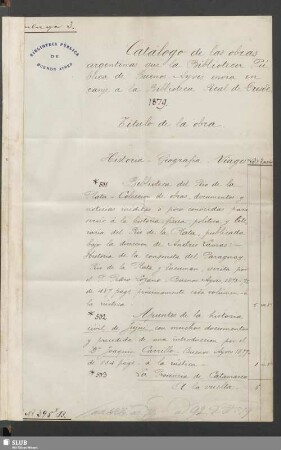 BIBLIOTECA PÚBLICA
DE
BUENOS AIRES
Catálogo de las obras
argentinas que la Biblioteca Pú
blica de Buenos-Ayres envia en
cange a la Biblioteca Real de
1879.
Título de la obra.
Historia - Geografía - Viages
*531 Biblioteca del Rio de la
Plata - Coleccion de obras, documentos y
noticias inéditas ó poco conocidas para
servir á la historia física, política y lite
raria del Rio de la Plata, publicada
bajo la direccion de Andrés Lamas:-
Historia de la conquista del Paraguay
Rio de la Plata y Tucuman, escrita por
el P. Pedro Lozano. Buenos Ayres 1873-75
de 487 pags.
á la rústica.
*532 Apuntes de la historia
civil de Jujuy con muchos documentos
y precedida de una introduccion por el
Dr. Joaquin Carrillo, Buenos Ayres 1877,
á la rústica -
*533 La Provincia de Catamarca
A la vuelta